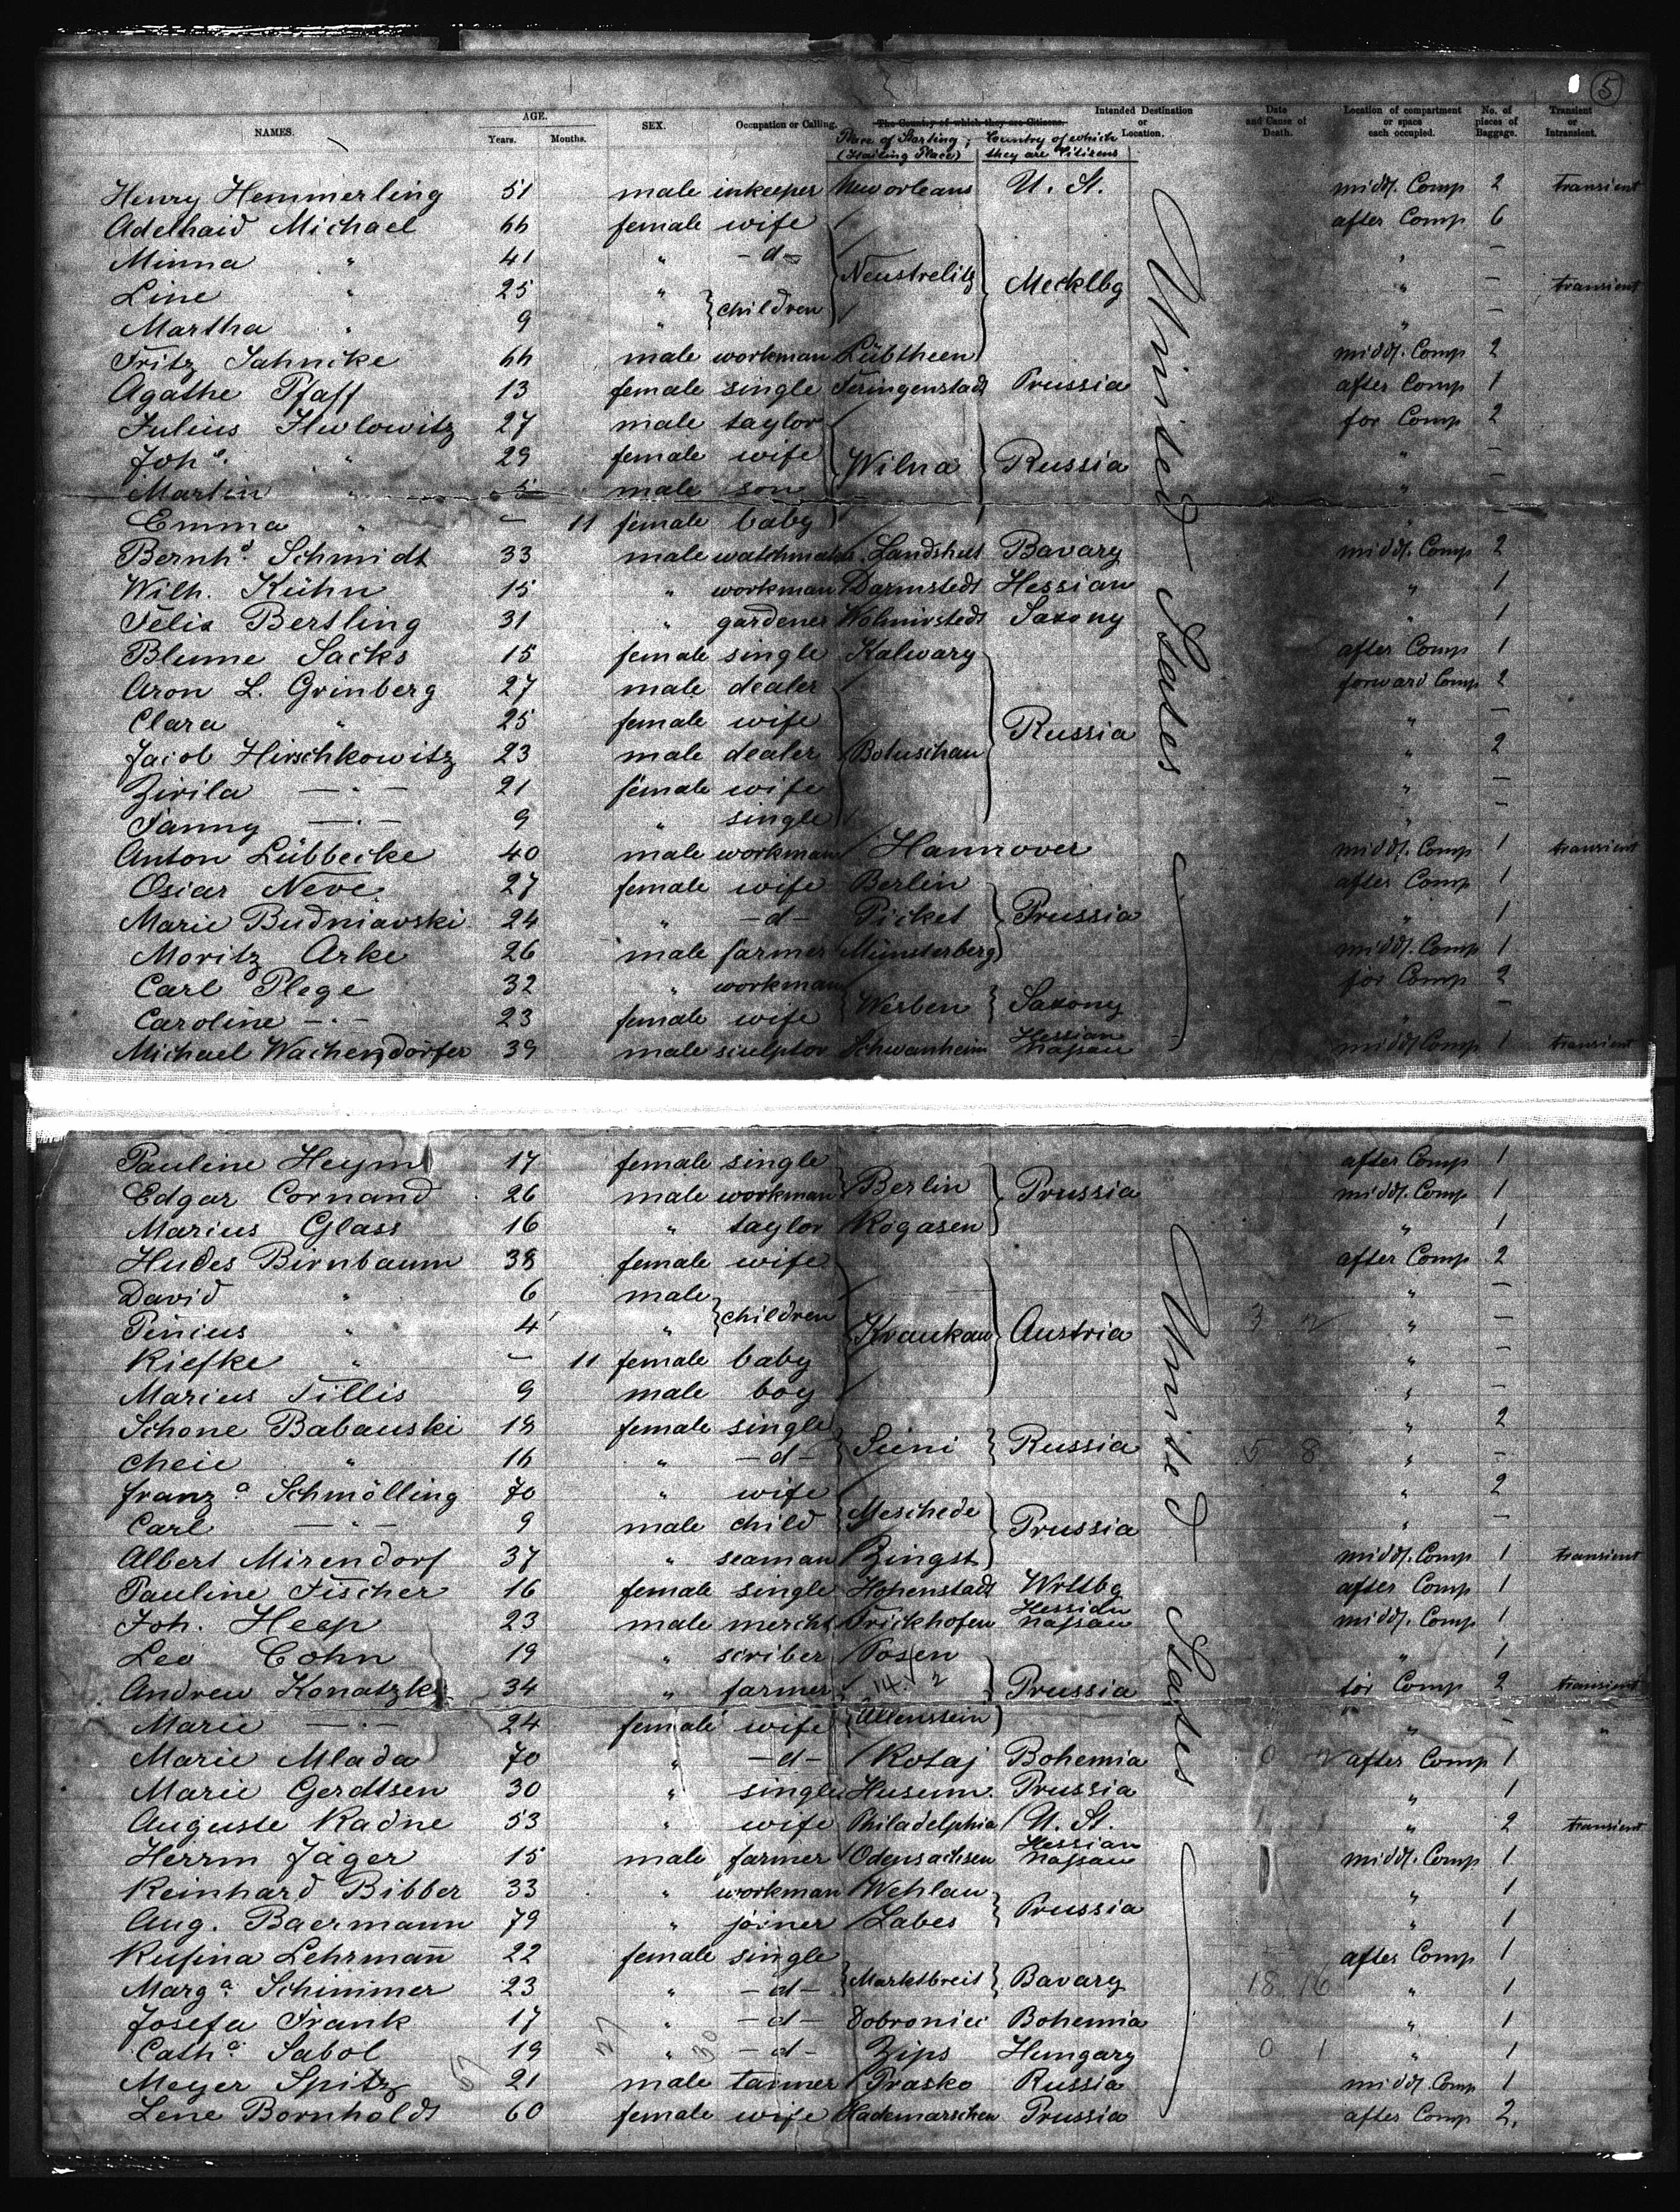 5
NAMES. AGE. Years. Months. SEX. Occupation or Calling. The Country of which they are Citizens. Intended Destination or Location. Date and Cause of Death. Location of compartment or space each occupied. No. of pieces of Baggage. Transient or Intransient.
Place of Starting, (Hailing Place) Country of which they are Citizens
Henry Hemmerling 51 male inkeeper New orleans U. St. midd. Comp 2 transient
Adelhaid Michael 66 female wife after Comp 6
Minna " 41 " -d- " -
Line " 25 " children Neustrelitz Mecklbg " - transient
Martha " 9 " " -
Fritz Jahncke 66 male workman Lübtheen midd. Comp 2
Agathe Pfaff 13 female single Feringenstadt Prussia after Comp 1
Julius 27 male taylor for Comp 2
Joh^e. " 29 female wife Wilna Russia " -
Martin " 5 male son " -
Emma " - 11 female baby " -
Bernh^d Schmidt 33 male watchmaker Landshut Bavary midd. Comp 2
Wilh. Kühn 15 " workman Darmstedt Hessian " 1
Felix Bertling 31 " gardener Wolmirstedt Saxony " 1
Blume Sacks 15 female single Kalwary after Comp 1
Aron L. Grinberg 27 male dealer forward Comp 2
Clara " 25 female wife Russia " -
Jacob Hirschkowitz 23 male dealer Botuschau " 2
Zirila -"- 21 female wife " -
Fanny -"- 9 " single " -
Anton Lübbecke 40 male workman Hannover midd. Comp 1 transient
Oscar Neve 27 female wife Berlin after Comp 1
Marie Budniavski 24 " -d- Picket Prussia " 1
Moritz Arke 26 male farmer Münsterberg midd. Comp 1
Carl Plege 32 " workman for Comp 2
Caroline -"- 23 female wife Werben Saxony " -
Michael Wachendörfer 39 male sculptor Schwanheim Hessian Nassau midd Comp 1 transient
United States
Pauline Heym 17 female single after Comp 1
Edgar Cornand 26 male workman Berlin Prussia midd. Comp 1
Marius Glass 16 " taylor Rogasen " 1
Hudes Birnbaum 38 female wife after Comp 2
David " 6 male children " -
Pinius " 4 " Kraukau Austria 3 2 " -
Riefke " - 11 female baby " -
Marius Tillis 9 male boy " -
Schone Babauski 18 female single " 2
Cheie " 16 " -d- Seini Russia 5 8 " -
Franz^a Schmölling 70 " wife " 2
Carl -"- 9 male child Meschede Prussia " -
Albert Mirendorf 37 " seaman Zingst midd. Comp 1 transient
Pauline Fischer 16 female single Hohenstadt Wrttbg after Comp 1
Joh. Heep 23 male mercht. Frickhofen Hessian Nassau midd. Comp 1
Leo Cohn 19 " scriber Posen " 1
Andreu Konatzki 34 " farmer Prussia for Comp 2 transient
Marie -"- 24 female wife Allenstein " - "
Marie Mlada 70 " -d- Kotaj Bohemia 0 2 after Comp 1
Marie Gerdtsen 30 " single Husum. Prussia " 1
Auguste Radne 53 " wife Philadelphia U. St. 1 1 " 2 transient
Herrm Jäger 15 male farmer Odensachsen Hessian Nassau midd. Comp 1
Reinhard Bibber 33 " workman Wehlau Prussia " 1
Aug. Baermann 79 " joiner Labes " 1
Rufina Lehrmañ 22 female single after Comp 1
Marg^a. Schimmer 23 " -d- Marktbreit Bavary 18 16 " 1
Josefa Frank 17 " -d- Dobronici Bohemia " 1
Cath^a. Sabol 19 " -d- Zips Hungary 0 1 " 1
Meyer Spitz 21 male tanner Prasko Russia midd. Comp 1
Lene Bornholdt 60 female wife Hademarschen Prussia after Comp 2.
United States